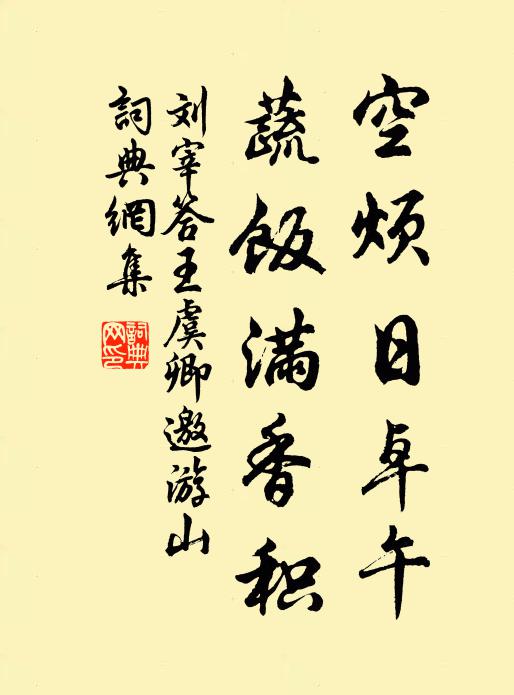 空烦日卓午
蔬飯满香积
刘宰答王虞卿邀游山
詞典網集
詞典网印